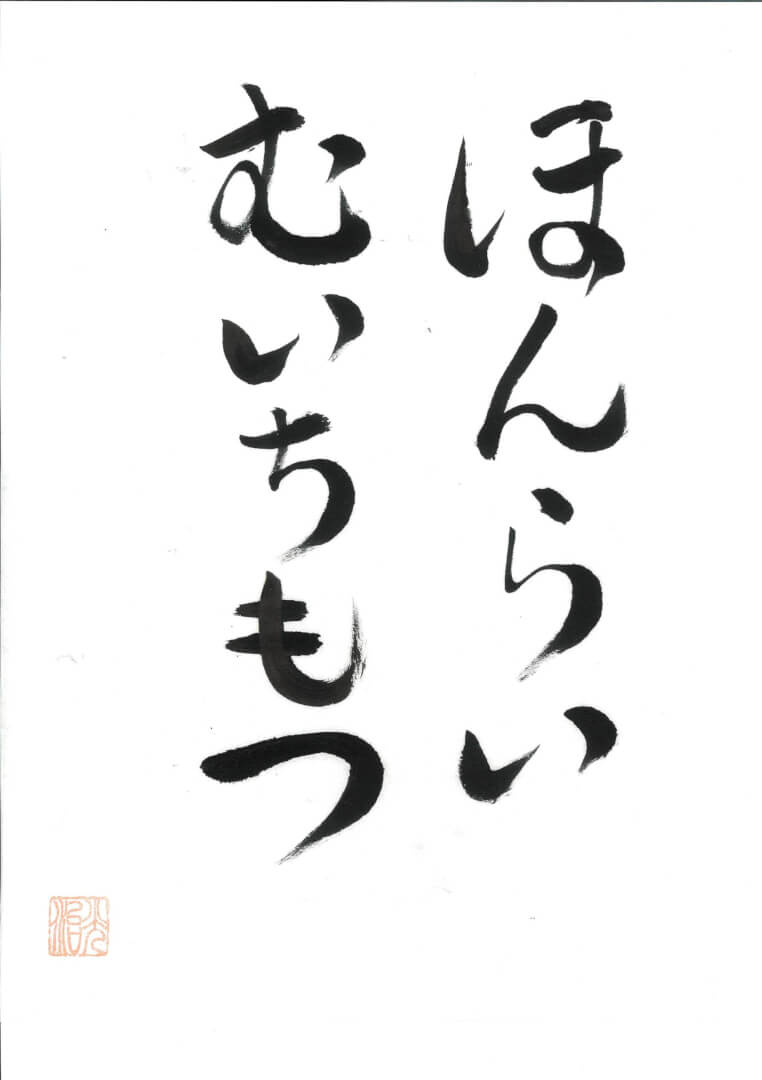 ほんらい
むいちもつ